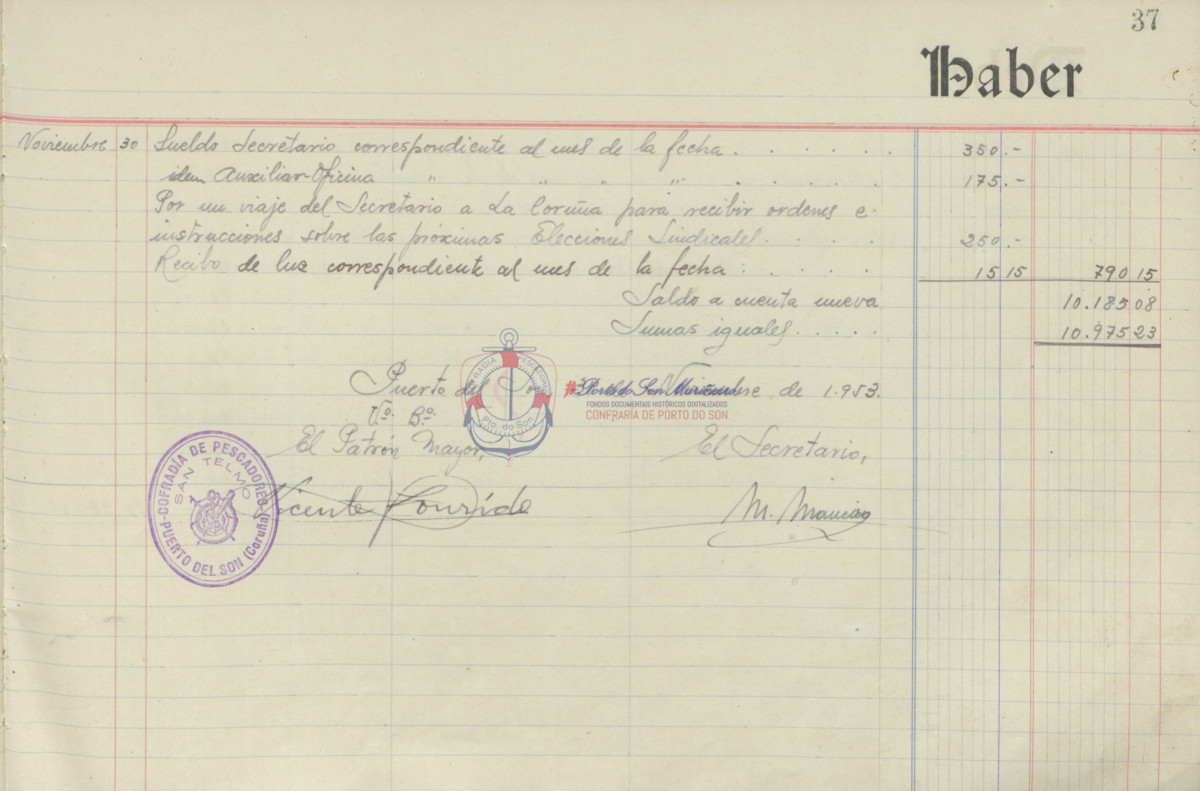 37
Haber
Noviembre 30 Sueldo Secretario correspondiente al mes de la fecha . . . . . . 350.-
idem Auxiliar-Oficina " " " " . . . . . . 175.-
Por un viaje del Secretario a La Coruña para recibir ordenes e
instrucciones sobre las próximas Elecciones Sindicales . . . . 250.-
Recibo de luz correspondiente al mes de la fecha : . . . . 15 15 790 15
Saldo a cuenta nueva 10.185 08
Sumas iguales . . . . . 10.975 23
Puerto del Son de 1.953.
#Porto do Son Mariñeiro
FONDOS DOCUMENTAIS HISTÓRICOS DIXITALIZADOS
CONFRARÍA DE PORTO DO SON
Pto. do Son
Vº. Bº.
El Patrón Mayor, El Secretario,
COFRADÍA DE PESCADORES
SAN TELMO
PUERTO DEL SON (Coruña)
Vicente
M.